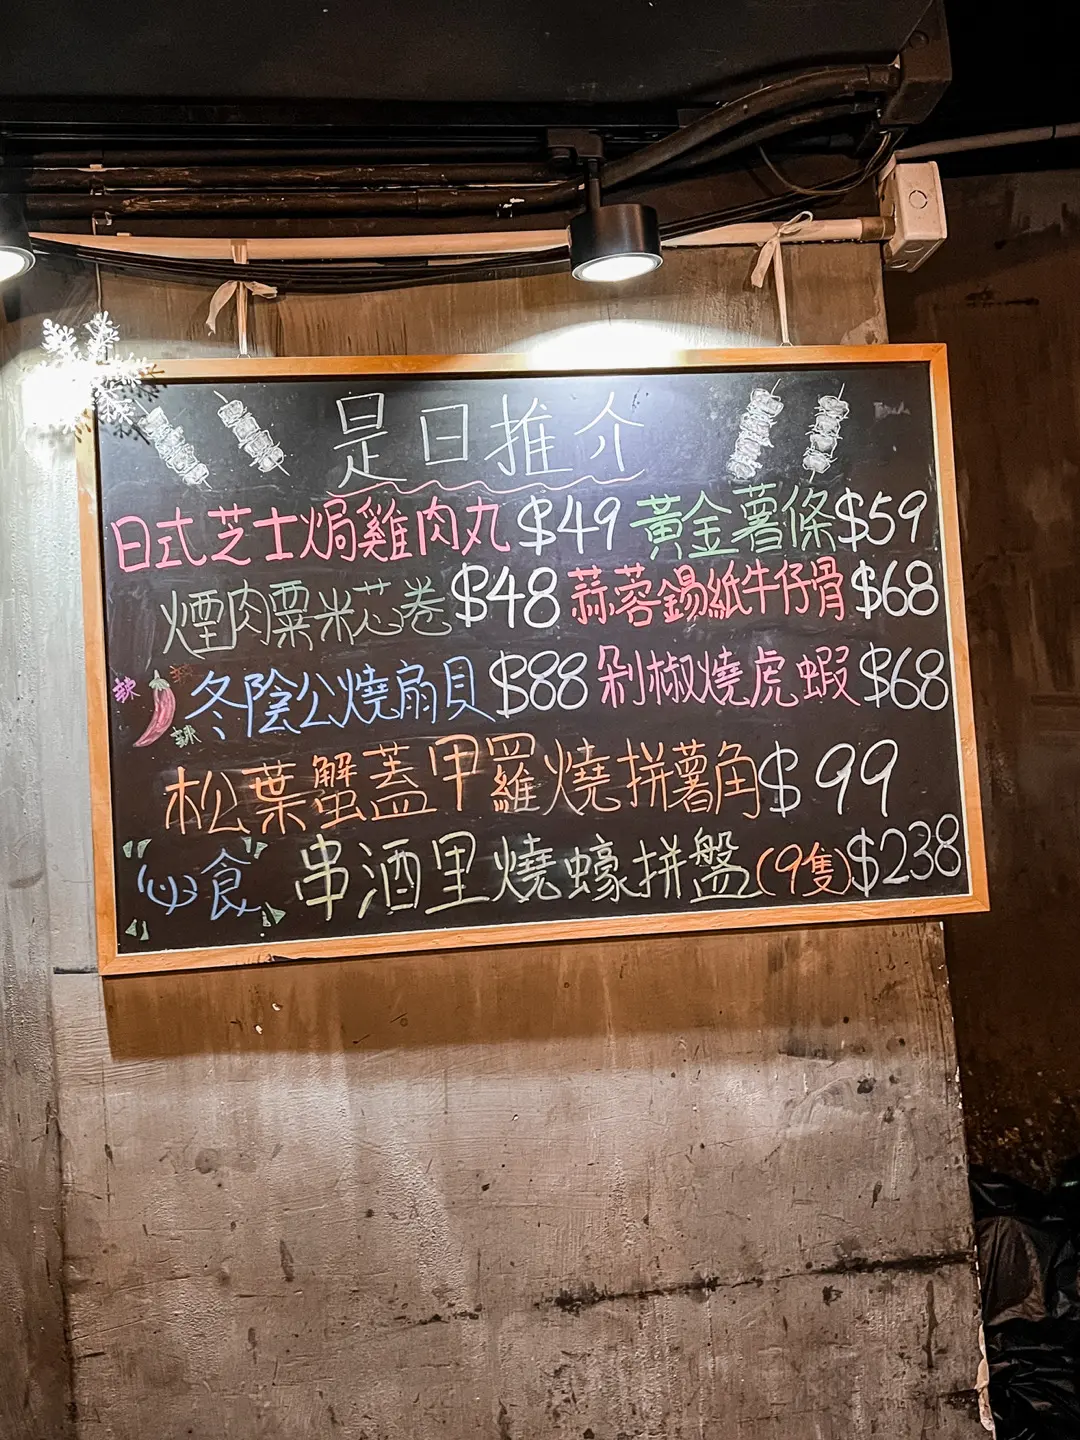 是日推介
日式芝士焗雞肉丸 $49 黃金薯條 $59
煙肉粟米芯卷 $48 蒜蓉錫紙牛仔骨 $68
辣 辣 辣 冬陰公燒扇貝 $88 剁椒燒虎蝦 $68
松葉蟹蓋甲羅燒拼薯角 $99
必食 串酒里燒蠔拼盤(9隻) $238